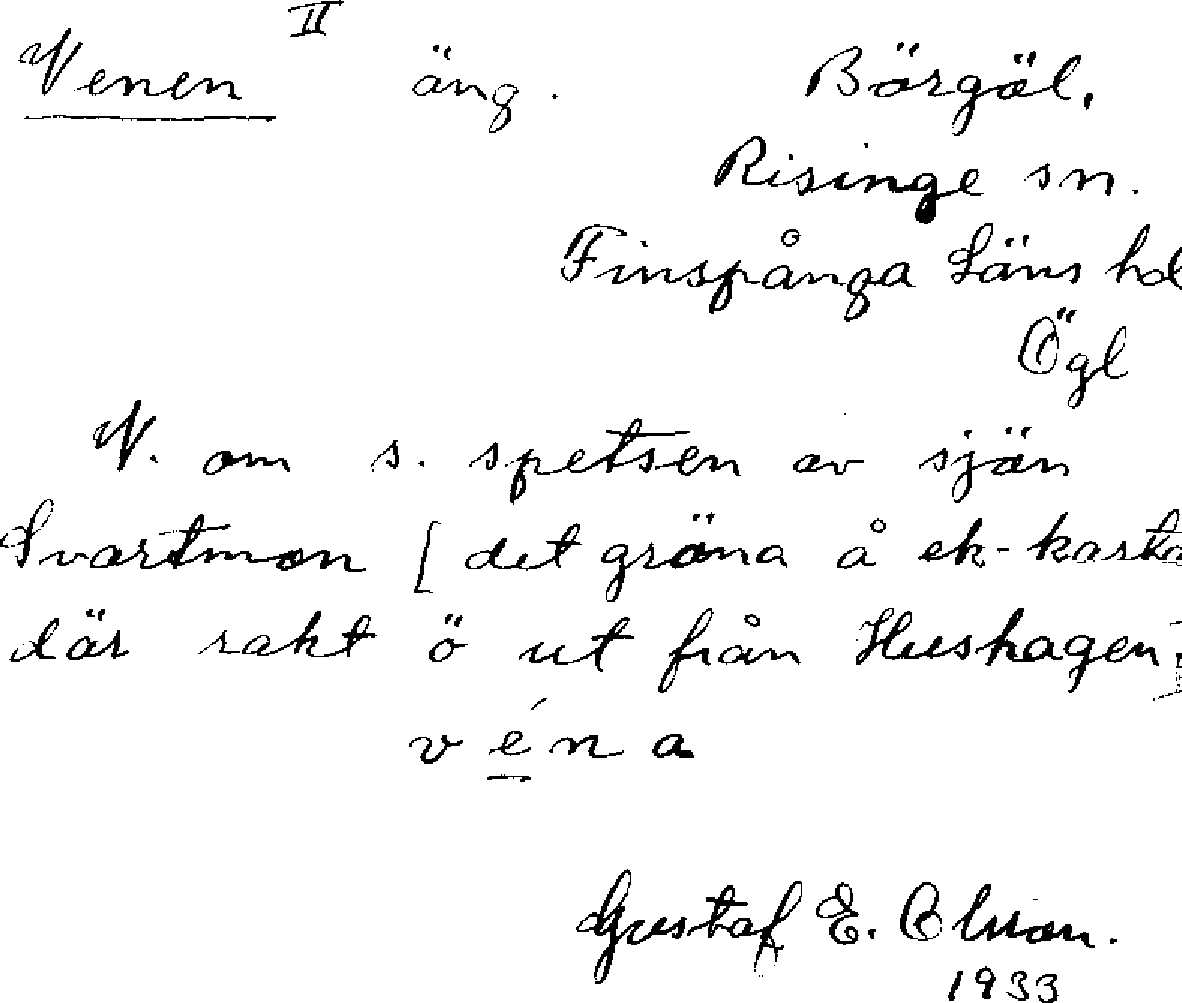 II
Venen äng. Börgöl,
Risinge sn.
Finspånga Läns hd
Ögl
V. om s. spetsen av sjön
Svartmon [det gröna å ek-karta
där rakt ö ut från Hushagen]
véna
Gustaf E. Olsson.
1933